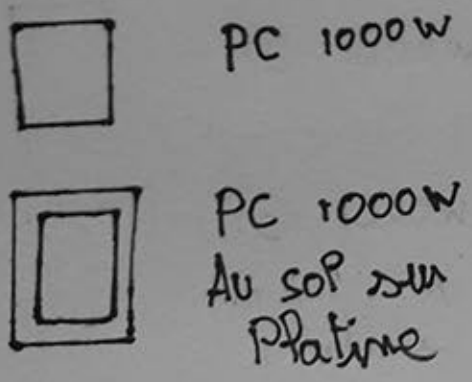 PC 1000W
PC 1000W
Au sol sur
Platine